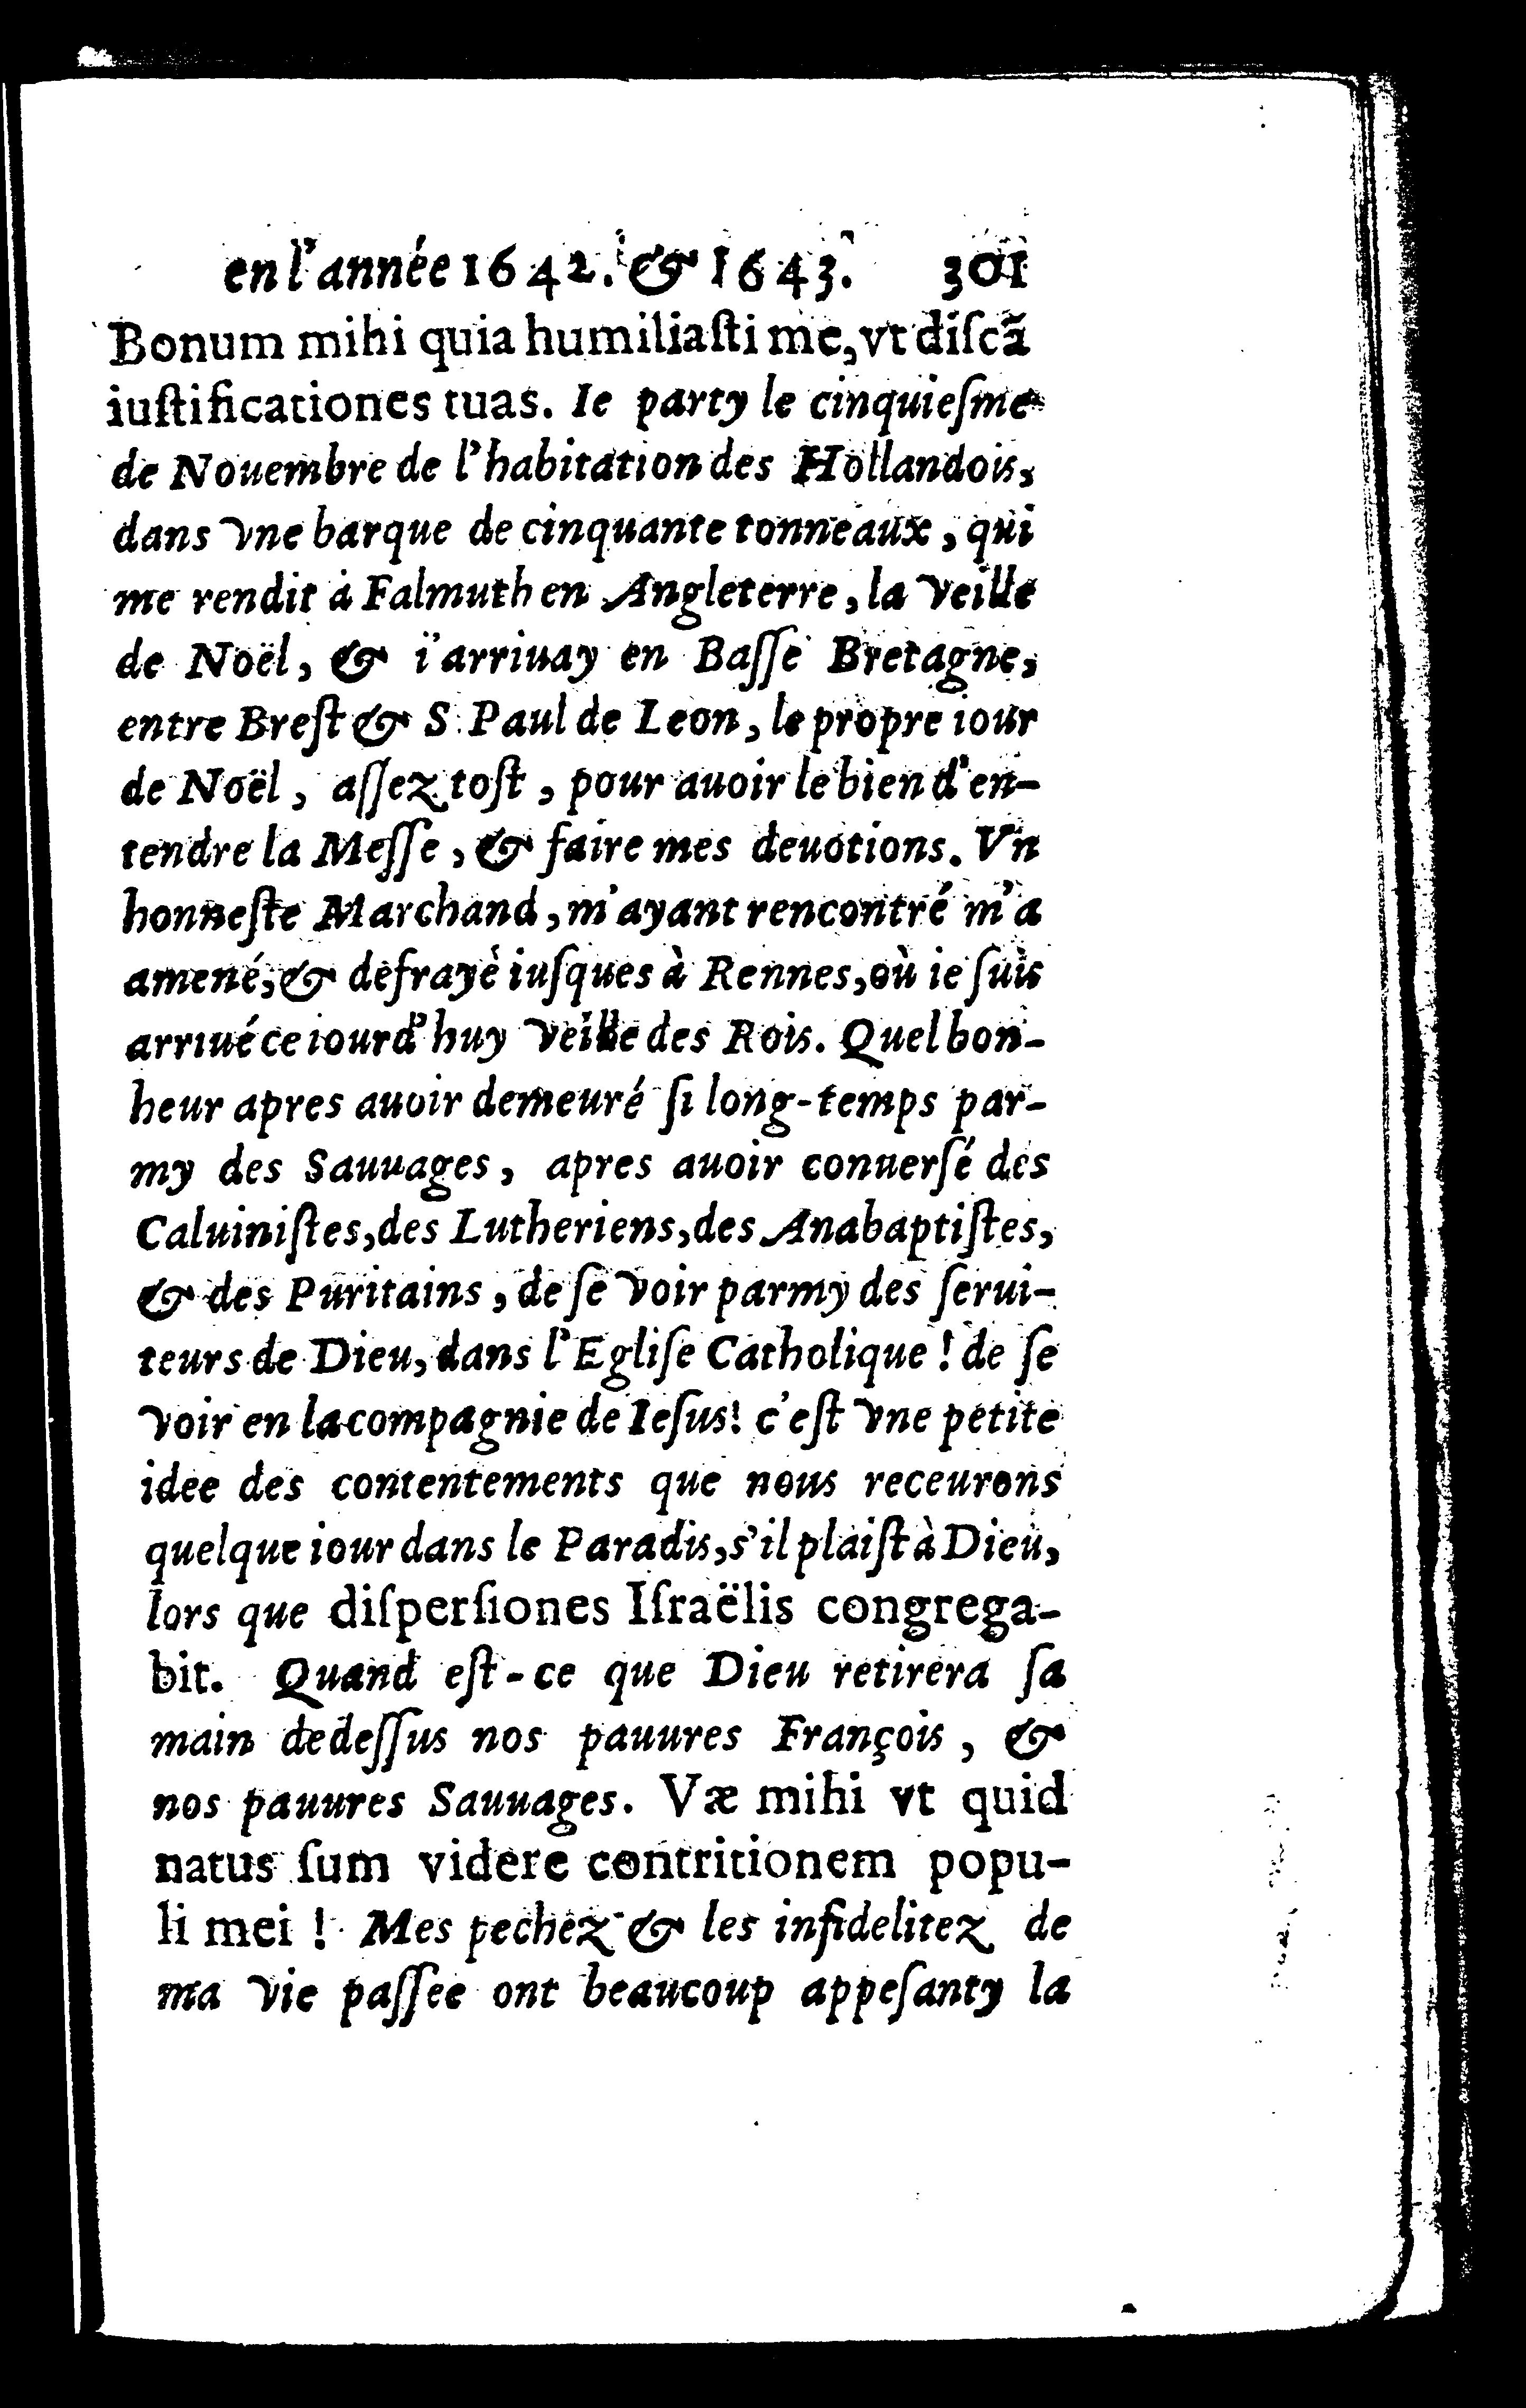 en l'année 1642. & 1643. 301
Bonum mihi quia humiliaſti me, vt diſcã
iuſtificationes tuas. Ie party le cinquieſme
de Nouembre de l'habitation des Hollandois,
dans vne barque de cinquante tonneaux, qui
me rendit à Falmuth en Angleterre, la veille
de Noël, & i'arriuay en Baſſe Bretagne,
entre Breſt & S. Paul de Leon, le propre iour
de Noël, aſſez toſt, pour auoir le bien d'en-
tendre la Meſſe, & faire mes deuotions. Vn
honneſte Marchand, m'ayant rencontré m'a
amené, & defrayé iuſques à Rennes, où ie ſuis
arriué ce iourd'huy veille des Rois. Quel bon-
heur apres auoir demeuré ſi long-temps par-
my des Sauuages, apres auoir conuerſé des
Caluiniſtes, des Lutheriens, des Anabaptiſtes,
& des Puritains, de ſe voir parmy des ſerui-
teurs de Dieu, dans l'Egliſe Catholique ! de ſe
voir en la compagnie de Ieſus! c'eſt vne petite
idee des contentements que nous receurons
quelque iour dans le Paradis, s'il plaiſt à Dieu,
lors que diſperſiones Iſraëlis congrega-
bit. Quand eſt-ce que Dieu retirera ſa
main dedeſſus nos pauures François, &
nos pauures Sauuages. Væ mihi vt quid
natus ſum videre contritionem popu-
li mei ! Mes pechez & les infidelitez de
ma vie paſſee ont beaucoup appeſanty la